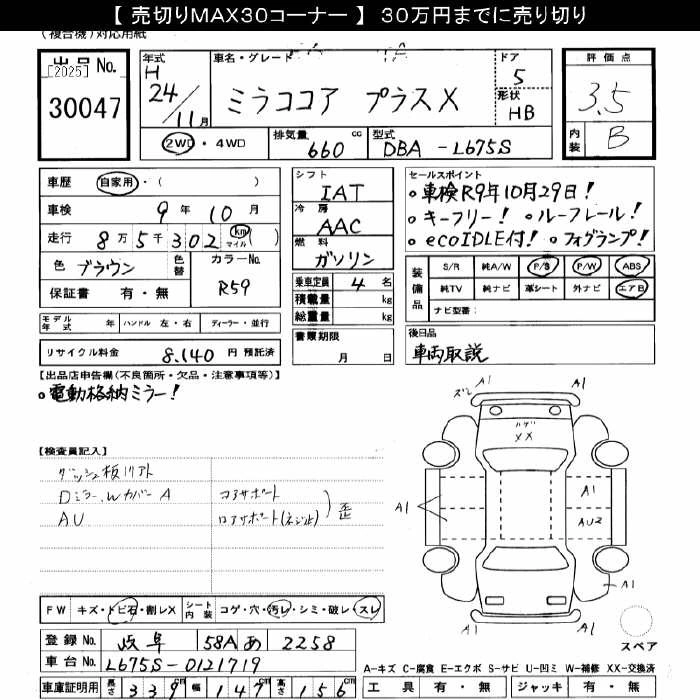 【 売切りMAX30コーナー 】 30万円までに売り切り
(複合機)対応用紙
出品 No.
[2025]
30047
年式 H 24/11 月
車名・グレード ミラココア プラスX
ドア 5
形状 HB
2WD ・ 4WD
排気量 660 cc
型式 DBA - L675S
評価点
3.5
内装 B
車歴 自家用・( )
車検 9 年 10 月
走行 8 万 5 千 302 km マイル ( )
色 ブラウン 色替 カラーNo. R59
保証書 有・無
モデル年式 年 ハンドル 左・右 ディーラー・並行
リサイクル料金 8,140 円 預託済
シフト IAT
冷房 AAC
燃料 ガソリン
乗車定員 4 名
積載量 kg
総重量 kg
書類期限
月 日
セールスポイント
○車検R9年10月29日!
○キーフリー! ○ルーフレール!
○ecoIDLE付! ○フォグランプ!
装備品 S/R 純A/W P/S P/W ABS
純TV 純ナビ 革シート 外ナビ エアB
ナビ型番:
後日品
車両取説
【出品店申告欄(不良箇所・欠品・注意事項等)】
○電動格納ミラー!
【検査員記入】
ダッシュ板リアト
Dミラー、Wカバー A コアサポート
AU ロアサポート(ネジ止) 歪
FW キズ・トビ石・割レX シート内装 コゲ・穴・汚レ・シミ・破レ・スレ
登録 No. 岐阜 58A あ 2258
車台 No. L675S-0121719
車庫証明用 長さ 339 cm 幅 147 cm 高さ 156 cm
ズレ A1 A1
ハゲ
XX
A1
A1
AU2
A1
A1
スペア
A-キズ C-腐食 E-エクボ S-サビ U-凹ミ W-補修 XX-交換済
工具 有・無 ジャッキ 有・無